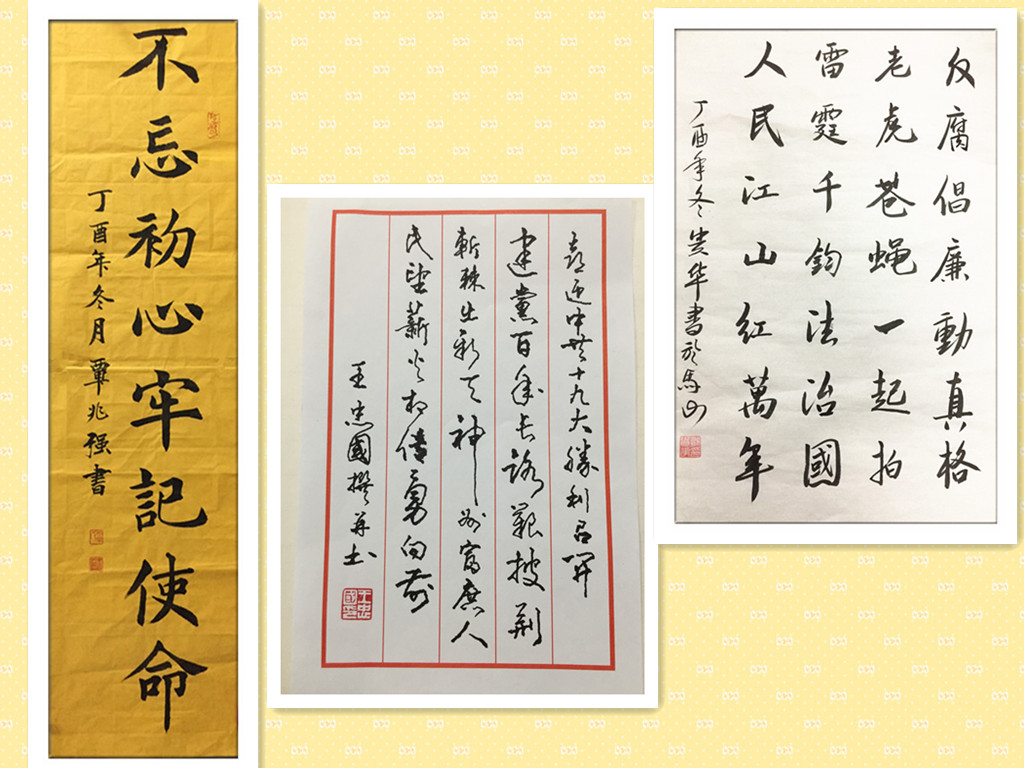 不忘初心牢記使命
丁酉年冬月覃兆强書
喜迎中共十九大勝利召開
建黨百年長路艱披荆
斬棘出新天神州富庶人
民望薪火相傳勇向前
王忠國撰并书
反腐倡廉動真格
老虎苍蝇一起拍
雷霆千鈞法治國
人民江山紅萬年
丁酉年冬贵华書於馬山